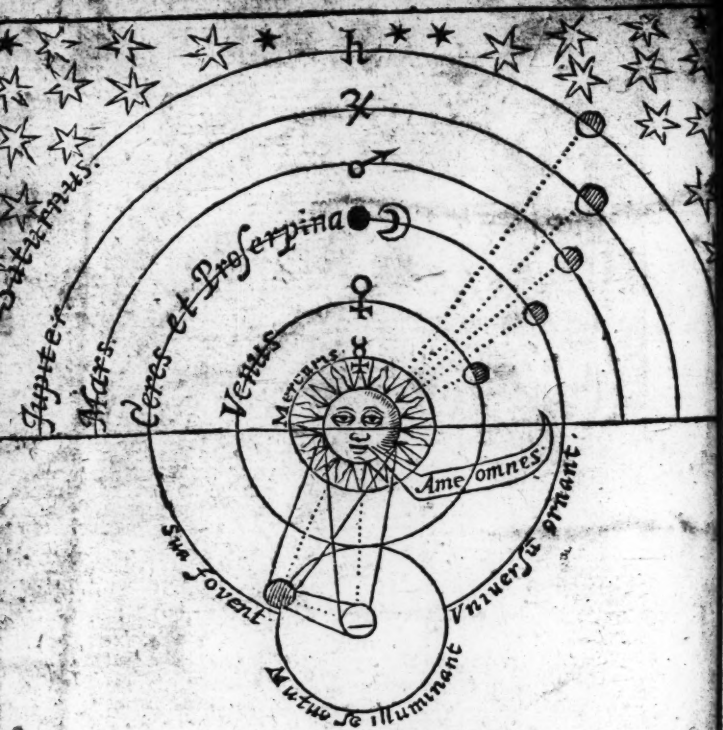 ♄
♃
♂
☽
♀
☿
Saturnus.
Jupiter.
Mars.
Ceres et Proſerpina
Venus
Mercurius
A me omnes.
Sua fovent
Vniuerſũ ornant.
Mutuo ſe illuminant